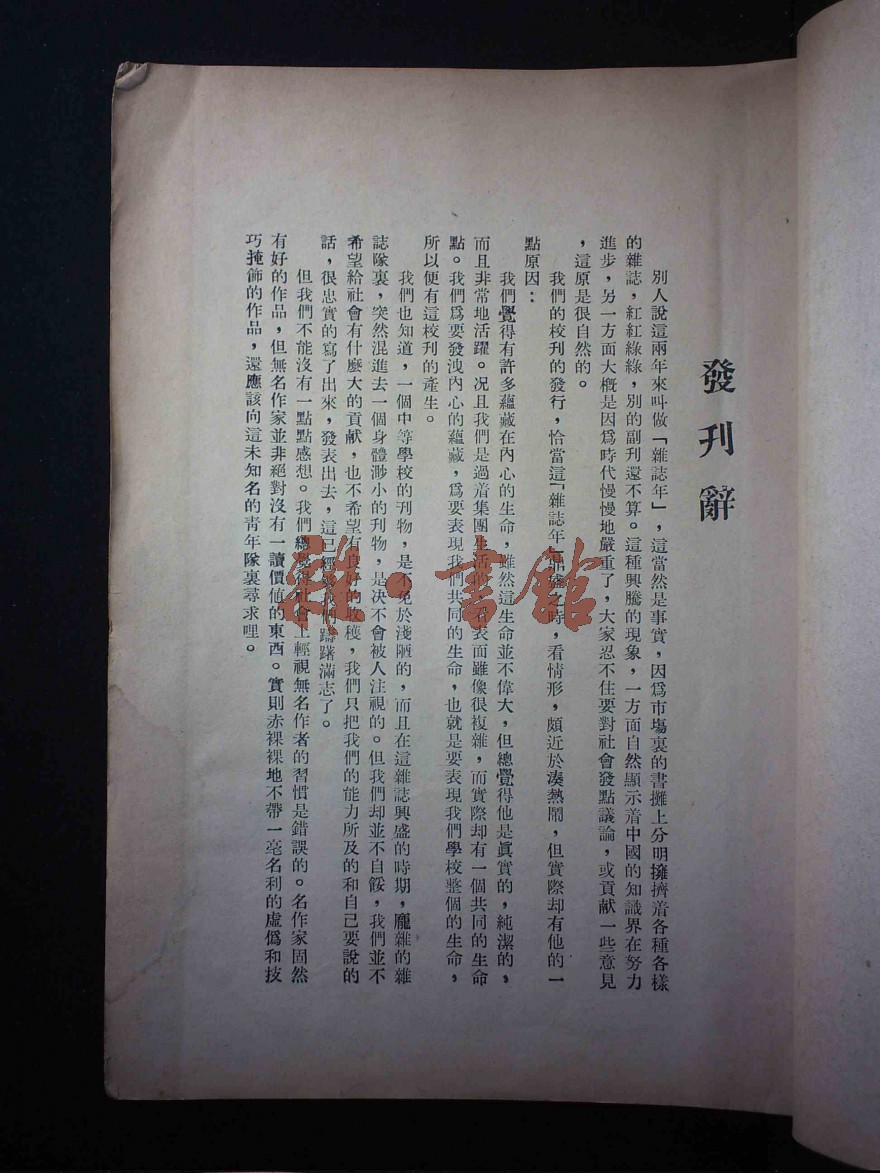 發刊辭
別人說這兩年來叫做「雜誌年」，這當然是事實，因爲市場裏的書攤上分明擁擠着各種各樣
的雜誌，紅紅綠綠，別的副刊還不算。這種興騰的現象，一方面自然顯示着中國的知識界在努力
進步，另一方面大槪是因爲時代慢慢地嚴重了，大家忍不住要對社會發點議論，或貢献一些意見
，這原是很自然的。
我們的校刊的發行，恰當這「雜誌年」鼎盛之時，看情形，頗近於湊熱鬧，但實際却有他的一
點原因：
我們覺得有許多蘊藏在內心的生命，雖然這生命並不偉大，但總覺得他是眞實的，純潔的，
而且非常地活躍。况且我們是過着集團生活的，看表面雖像很複雜，而實際却有一個共同的生命
點。我們爲要發洩內心的蘊藏，爲要表現我們共同的生命，也就是要表現我們學校整個的生命，
所以便有這校刊的產生。
我們也知道，一個中等學校的刊物，是不免於淺陋的，而且在這雜誌興盛的時期，龐雜的雜
誌隊裏，突然混進去一個身體渺小的刊物，是决不會被人注視的。但我們却並不自餒，我們並不
希望給社會有什麼大的貢献，也不希望有良好的收穫，我們只把我們的能力所及的和自己要說的
話，很忠實的寫了出來，發表出去，這已經够我們躊躇滿志了。
但我們不能沒有一點點感想。我們總覺得社會上輕視無名作者的習慣是錯誤的。名作家固然
有好的作品，但無名作家並非絕對沒有一讀價値的東西。實則赤裸裸地不帶一毫名利的虛僞和技
巧掩飾的作品，還應該向這未知名的青年隊裏尋求哩。
雜·書館